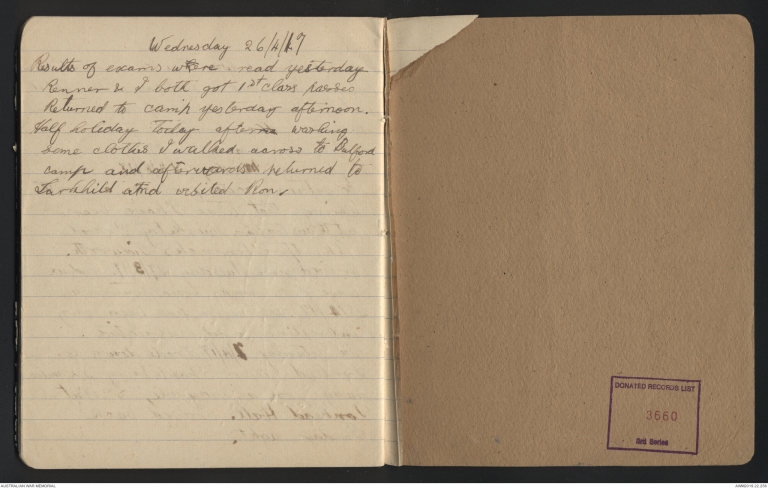 Wednesday 26/4/17
Results of exams were read yesterday
Renner & I both got 1st class passes
Returned to camp yesterday afternoon.
Half holiday today after washing
some clothes I walked across to Bulford
camp and afterwards returned to
Larkhild and visited Ron.
DONATED RECORDS LIST
3660
3rd Series
AUSTRALIAN WAR MEMORIAL